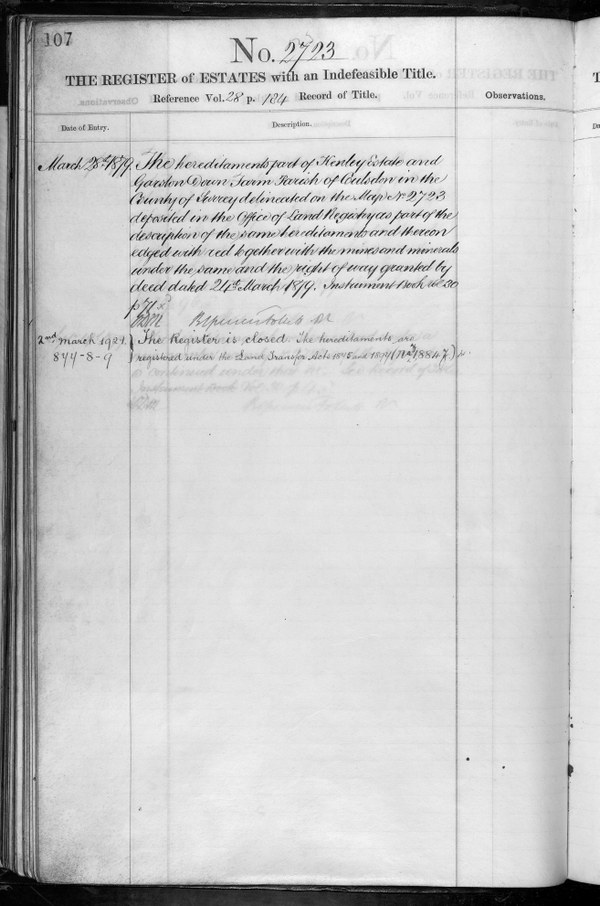 107
No. 2723
THE REGISTER of ESTATES with an Indefeasible Title.
Reference Vol. 28 p. 184 Record of Title.
Observations.
Date of Entry.
Description.
March 28th 1879. The hereditaments part of Kenley Estate and
Garston Down Farm Parish of Coulsdon in the
County of Surrey delineated on the Map No 2723
deposited in the Office of Land Registry as part of the
description of the same hereditaments and thereon
edged with red together with the mines and minerals
under the same and the right of way granted by
deed dated 24th March 1879. Instrument Book vol. 30
p 71.
2nd March 1921. The Register is closed. The hereditaments are
844-8-9 registered under the Land Transfer Acts 1875 and 1897 (No 18847)